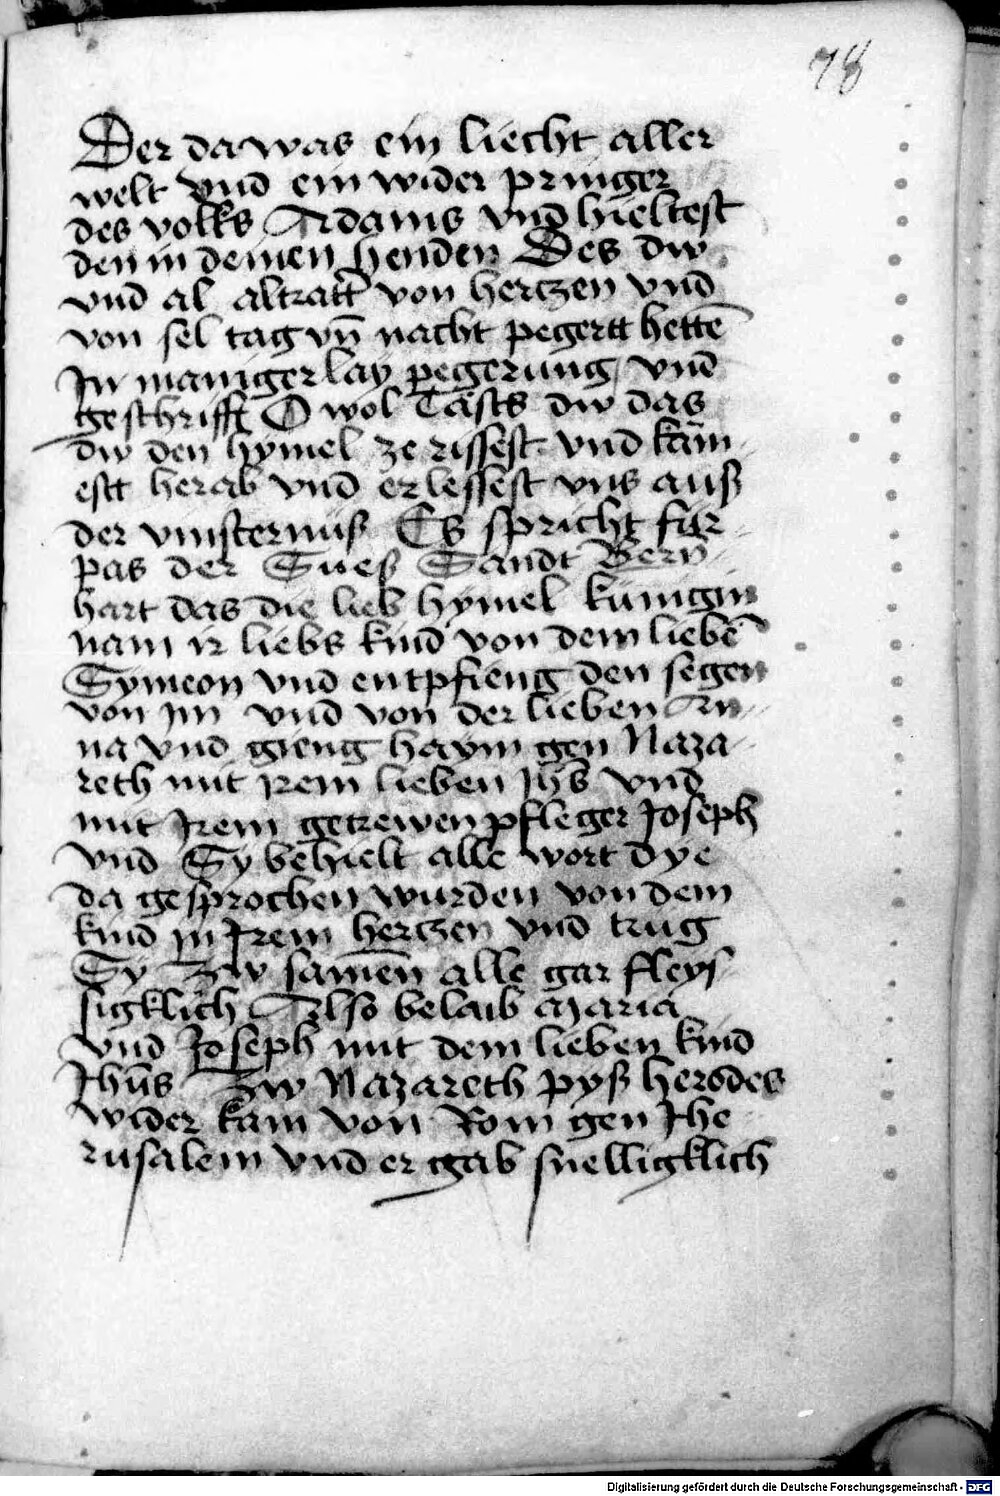 78
Der da was ein liecht aller
welt vnd ein wider pringer
des volks Adams vnd hieltest
den in deinen henden Des dw
vnd al altratt von hertzen vnd
von sel tag vn̄ nacht pegertt hettē
In maniger lay pegerung vnd
geschrifft O wol Tästs dw das
dw den hymel ze rissest vnd käm
estt herab vnd erlessest vns auß
der vinsternuß Es spricht für
pas der Sues Sandt Bern
hart das die lieb hymel künigin
nam ir liebs kind von dem liebē
Symeon vnd entpfieng den segen
von im vnd von der lieben An
na vnd gieng haym gen Naza
reth mit irem lieben Jhs̄ vnd
mit Irem getrewen pfleger Joseph
vnd Sy behielt alle wort dye
da gesprochen wurden von dem
kind in Irem hertzen vnd trug
Sy zw samēn alle gar fleys
sigklich Also belaib Maria
vnd Joseph mit dem lieben kind
Jhūs zw Nazareth pyß herodes
wider kam von Rom gen Jhe
rusalem vnd er gab snelligklich
Digitalisierung gefördert durch die Deutsche Forschungsgemeinschaft - DFG